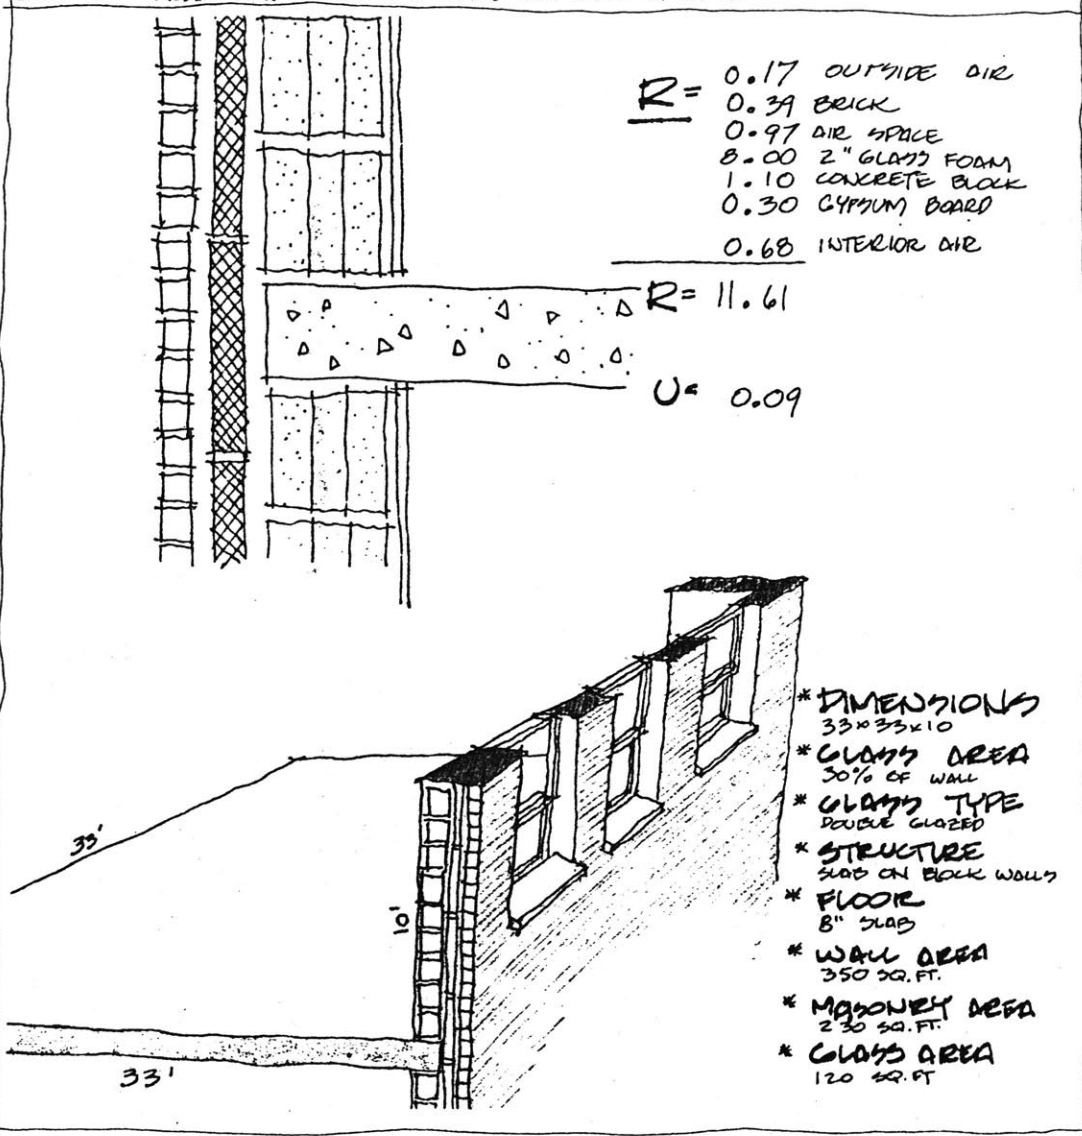 R = 0.17 OUTSIDE AIR
0.39 BRICK
0.97 AIR SPACE
8.00 2" GLASS FOAM
1.10 CONCRETE BLOCK
0.30 GYPSUM BOARD
0.68 INTERIOR AIR
R = 11.61
U = 0.09
* DIMENSIONS
33x33x10
* GLASS AREA
30% OF WALL
* GLASS TYPE
DOUBLE GLAZED
* STRUCTURE
SLAB ON BLOCK WALLS
* FLOOR
8" SLAB
* WALL AREA
350 SQ.FT.
* MASONRY AREA
230 SQ.FT.
* GLASS AREA
120 SQ.FT
33'
10'
33'